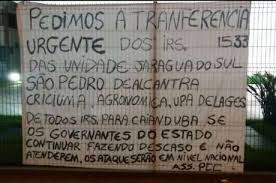 PEDIMOS A TRANFERENCIA
URGENTE DOS IRS. 1533
DAS UNIDADE JARAGUA DO SUL
SÃO PEDRO DE ALCANTRA
CRICIUMA, AGRONOMICA, UPA DE LAGES
DE TODOS IRS. PARA CAIANDUBA. SE
OS GOVERNANTES DO ESTADO
CONTINUAR FAZENDO DESCASO E NÃO
ATENDEREM, OS ATAQUE SERÃO EM NÍVEL NACIONAL
ASS. PCC